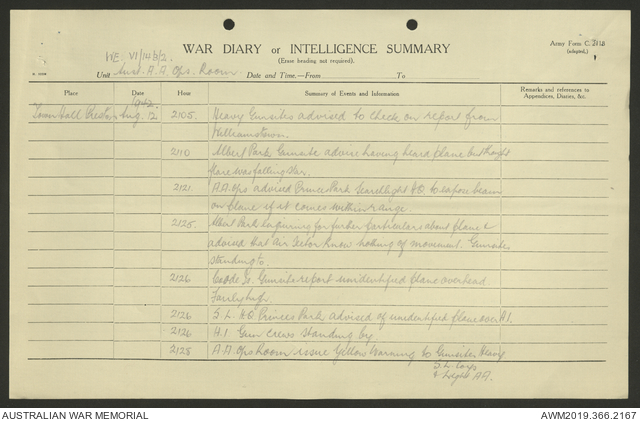 WE: VI/14/3/2.
WAR DIARY or INTELLIGENCE SUMMARY
(Erase heading not required).
Army Form C. 2118
(adapted.)
Unit A.A. Ops. Room Date and Time.—From To
Place Date Hour Summary of Events and Information Remarks and references to Appendices, Diaries, &c.
1942
Town Hall Preston Aug. 12 2105. Heavy Gunsites advised to check on report from
Williamstown.
2110 Albert Park Gunsite advise having heard plane but thought
flare was falling star.
2121 A.A. Ops advised Princes Park Searchlight H.Q. to expose beam
on plane if it comes within range.
2125 Albert Park enquiring for further particulars about plane &
advised that Air Sector know nothing of movement. Gunsites
standing to.
2126 Coode Is. Gunsite report unidentified plane overhead
Fairly high.
2126 S.L. H.Q. Princes Park advised of unidentified plane over A1.
2126 A.1 Gun crews standing by
2128 A.A. Ops Room issue Yellow Warning to Gunsites Heavy
S.L. Coys
& Light AA.
AUSTRALIAN WAR MEMORIAL
AWM2019.366.2167